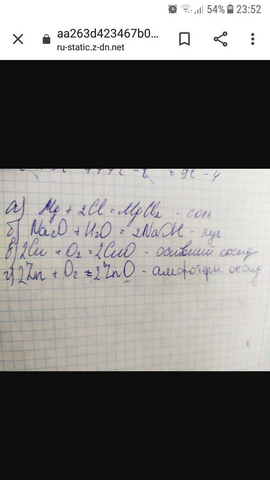 54% 23:52
aa263d423467b0...
ru-static.z-dn.net
= 9l - 4
а) Mg + 2Cl = MgCl₂ - соль
б) Na₂O + H₂O = 2NaOH - луг
в) 2Cu + O₂ = 2CuO - основний оксид
г) 2Zn + O₂ = 2ZnO - амфотерн оксид